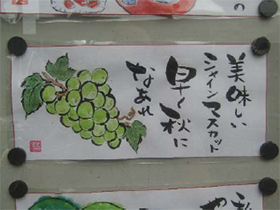 美味しい
シャインマスカット
早く秋に
なあれ
の